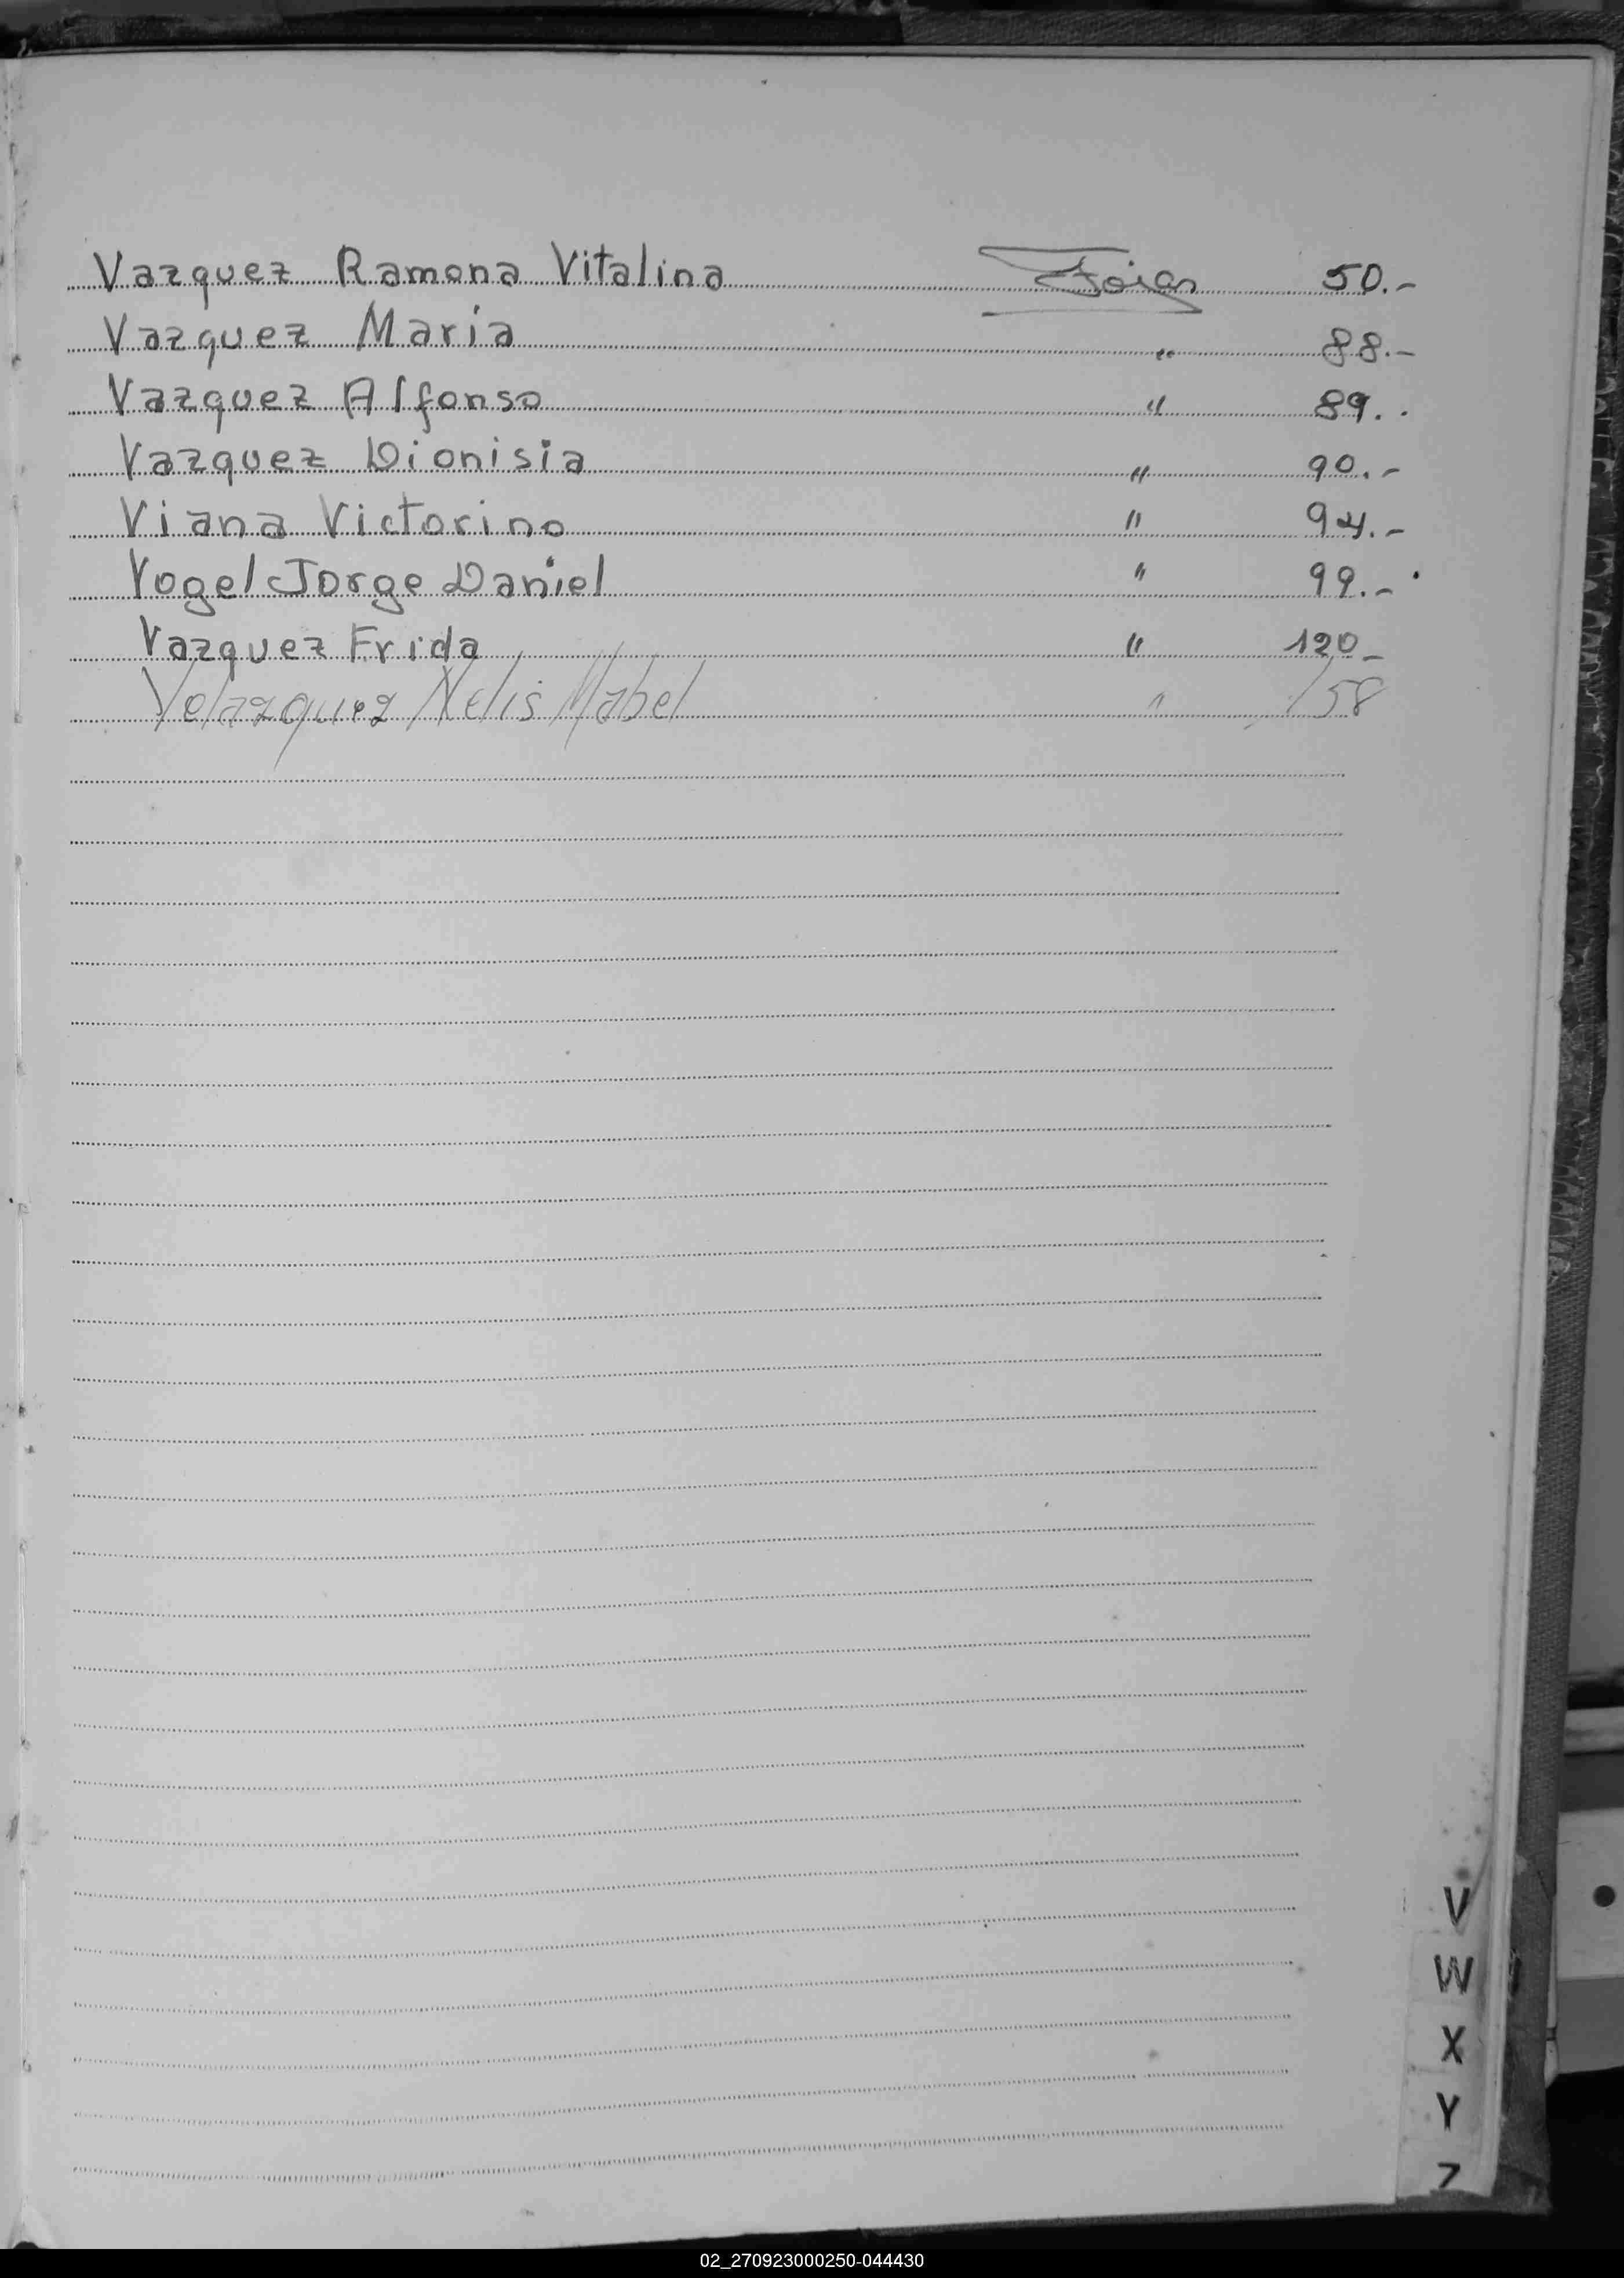 Vazquez Ramona Vitalina Fojas 50.-
Vazquez Maria " 88.-
Vazquez Alfonso " 89..
Vazquez Dionisia " 90.-
Viana Victorino " 94.-
Vogel Jorge Daniel " 99.-
Vazquez Frida " 120-
Velazquez Nelis Mabel " 158
V
W
X
Y
Z
02_270923000250-044430